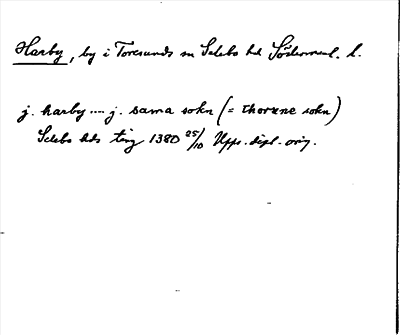 Harby, by i Toresunds sn Selebo hd Södermanl. l.
j. harby .... j. sama sokn (= thorxne sokn)
Selebo hds ting 1380 25/10 Upps. dipl. orig.